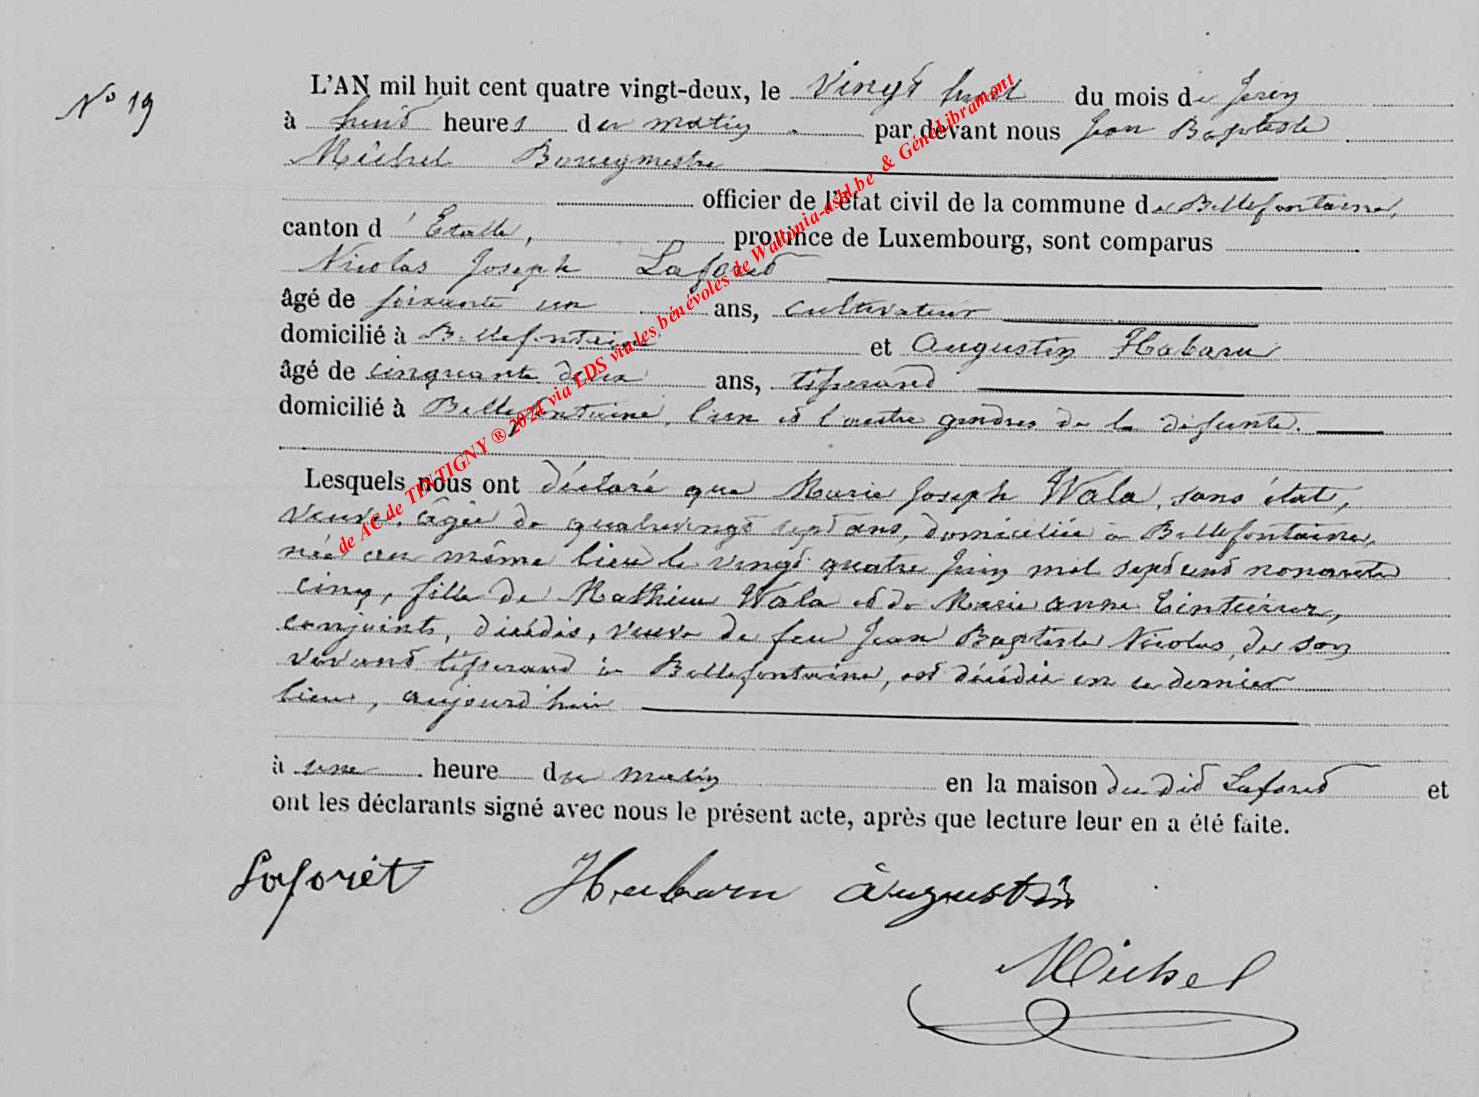 N° 19
L'AN mil huit cent quatre vingt-deux, le vingt huit du mois de Juin
à huit heures du matin par devant nous Jean Baptiste
Michel Bourgmestre
officier de l'état civil de la commune de Bellefontaine,
canton d'Etalle, province de Luxembourg, sont comparus
Nicolas Joseph Laforêt
âgé de soixante un ans, cultivateur
domicilié à Bellefontaine et Augustin Habaru
âgé de cinquante deux ans, tisserand
domicilié à Bellefontaine, l'un et l'autre gendres de la défunte.
Lesquels nous ont déclaré que Marie Joseph Wala, sans état,
veuve, âgée de quatrevingt sept ans, domiciliée à Bellefontaine,
née au même lieu le vingt quatre Juin mil sept cent nonante
cinq, fille de Mathieu Wala et de Marie Anne
conjoints, décédés, veuve de feu Jean Baptiste Nicolas, de son
vivant tisserand à Bellefontaine, est décédée en ce dernier
lieu, aujourd'hui
à une heure du matin en la maison du dit Laforêt et
ont les déclarants signé avec nous le présent acte, après que lecture leur en a été faite.
Laforêt Habaru Augustin
Michel
de AC de TINTIGNY ® 2024 via LDS via les bénévoles de Wallonia-asbl.be & GénéLibramont